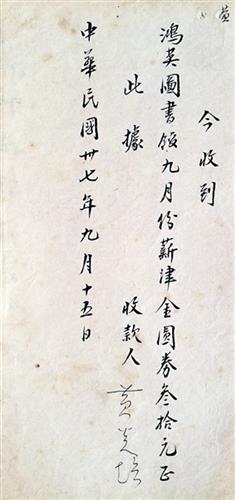 今收到
鴻英圖書館九月份薪津金圓券叁拾元正
此據
收款人 黃炎培
中華民國卅七年九月十五日